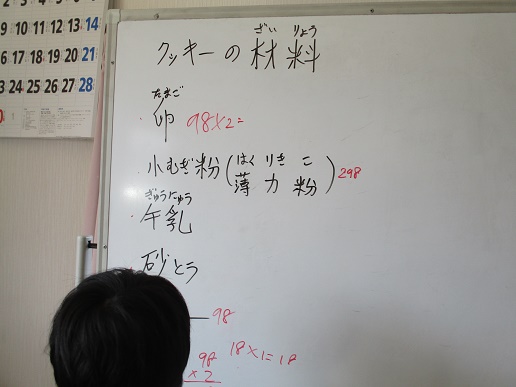 クッキーの材料
ざい りょう
たまご
卵 98×2=
小むぎ粉(薄力粉) 298
はく りき こ
ぎゅうにゅう
牛乳
砂とう
98
98 18×1=18
×2
2 3 4 5 6 7
9 10 11 12 13 14
6 17 18 19 20 21
3 24 25 26 27 28